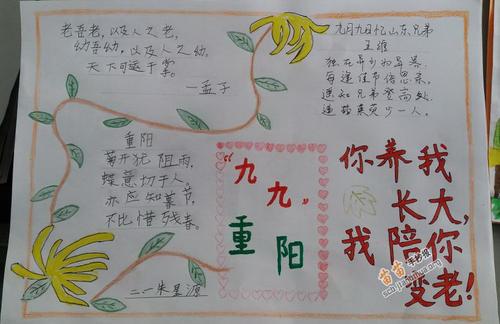 老吾老,以及人之老,
幼吾幼,以及人之幼,
天下可运于掌。
—孟子
九月九日忆山东兄弟
王维
独在异乡为异客,
每逢佳节倍思亲,
遥知兄弟登高处,
遍插茱萸少一人。
重阳
菊开犹阻雨,
蝶意切于人
亦应知暮节,
不比惜残春。
二一朱星源
“九九”
重阳
你养我
长大,
我陪你
变老!
苗苗手抄报